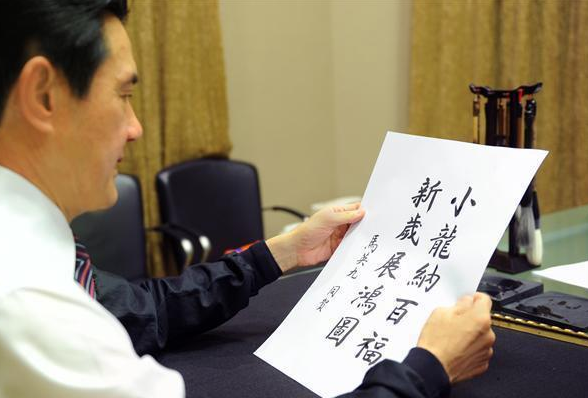 小龍納百福
新歲展鴻圖
馬英九 同賀